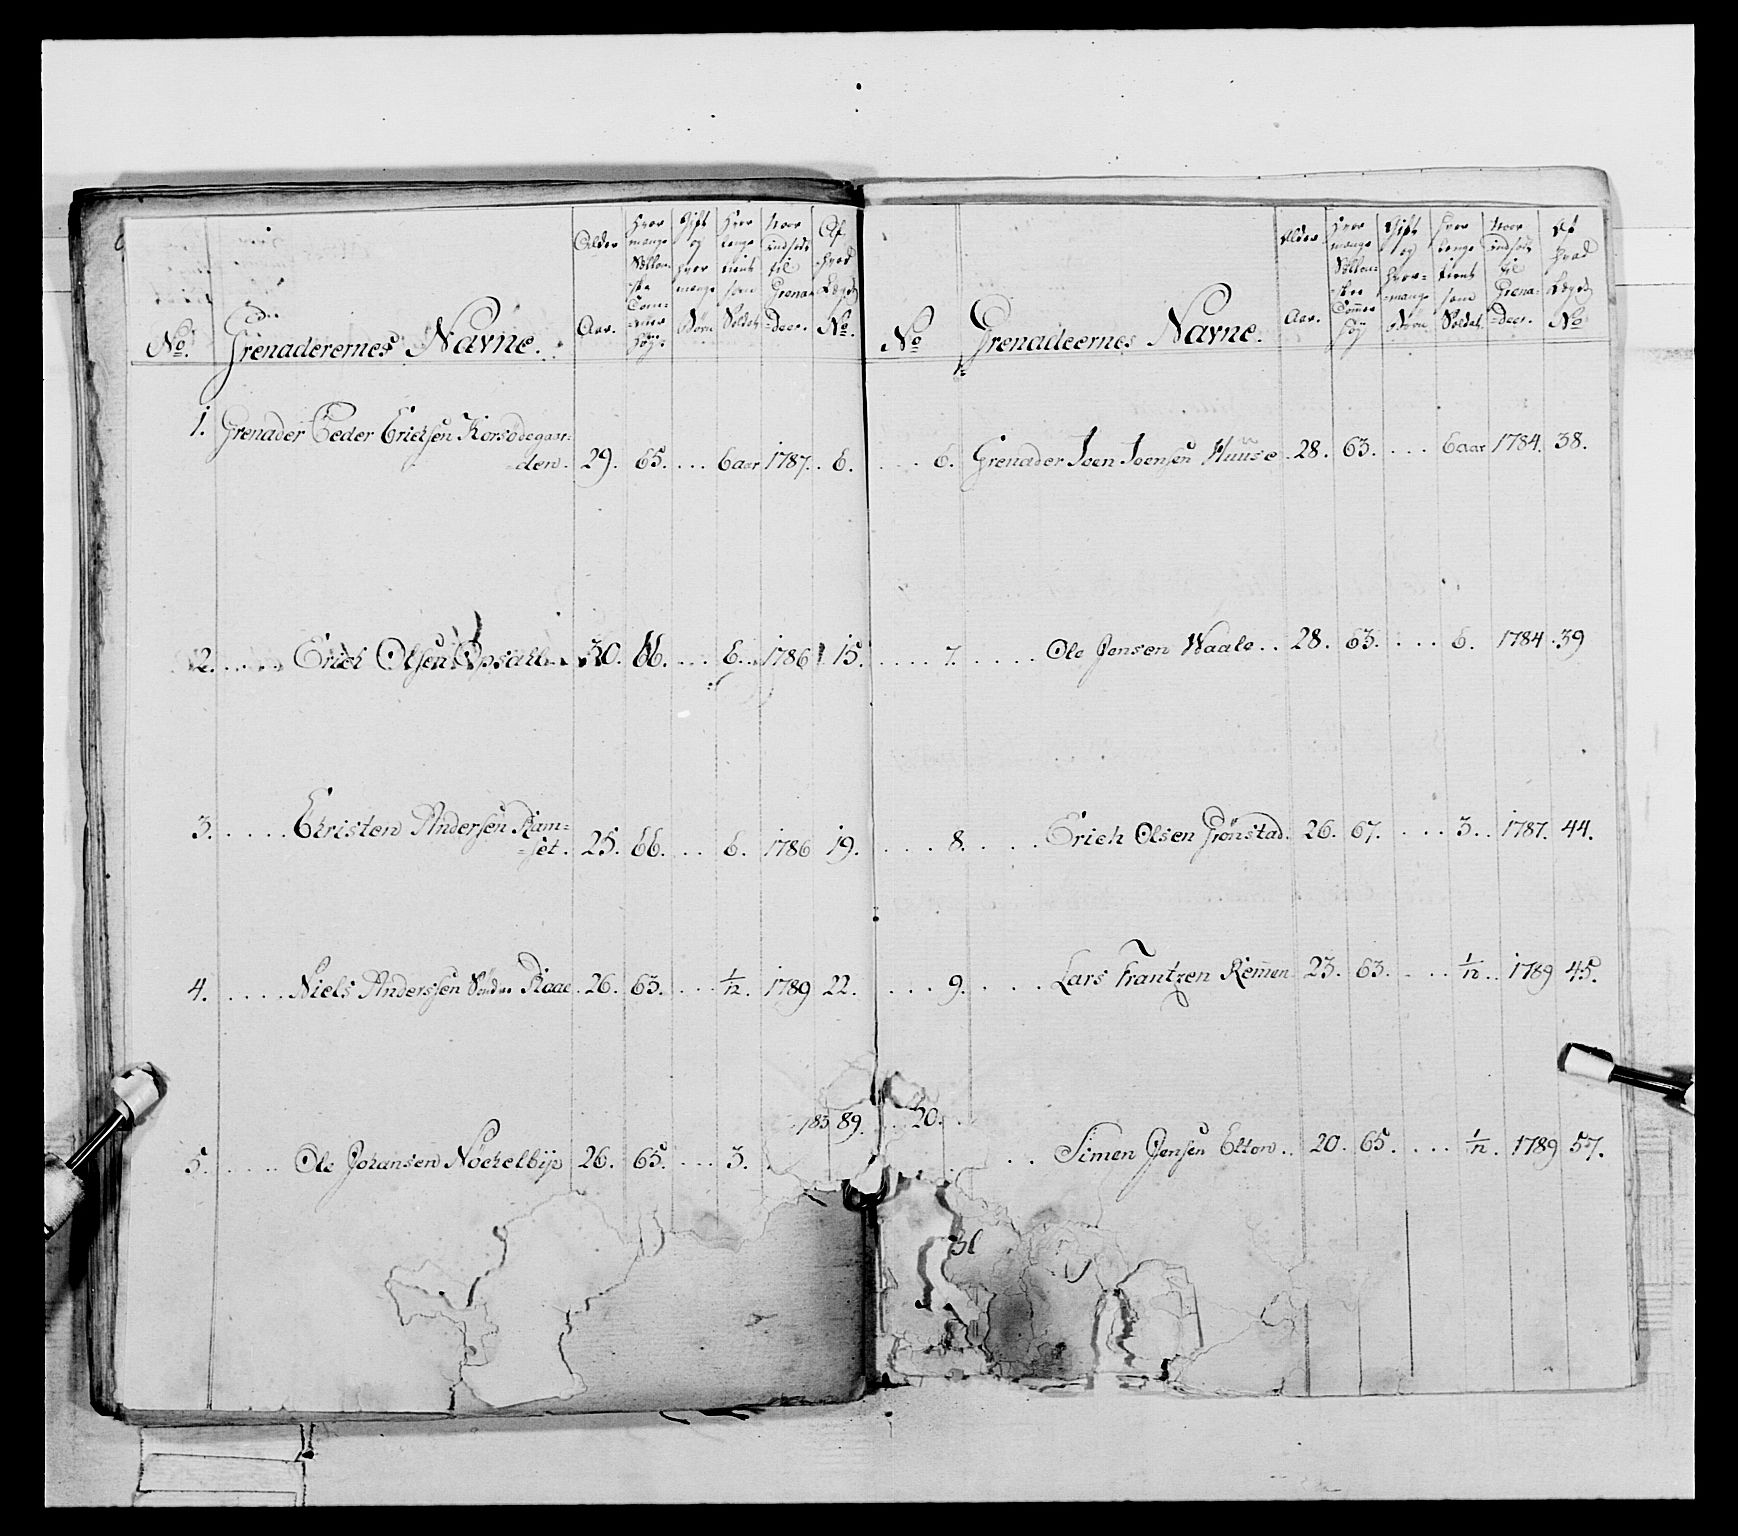 No. Grenaderernes Navne. Alder Aar. Hver mange Sællan- ske Tom- mer Høy. Gift og hver mange Børn Hver lenge tient som Soldat Naar indsadt til Grena- deer. Af hvad Lægd No.
1. Grenader Peder Erichsen Korsødegaar-
den. 29. 65. ... 6 aar 1787. 6.
2. .... Erich Olsen Opsahl. 30. 66. ... 6. 1786 15.
3. .... Christen Andersen Ram-
set. 25. 66. ... 6. 1786 19.
4. .... Niels Anderssen Søndre Raae. 26. 63. ... 1/12. 1789 22.
89.
5. .... Ole Johansen Nockelbye 26. 65. ... 3.
No Grenadeernes Navne. Alder Aar. Hver mange Sællan- ske Tommer Høy Gift og hver- mange Børn Hver lenge tient som Soldat Naar indsadt til Grena- deer. Af hvad Lægd No
6. Grenader Joen Joensen Huuse 28. 63. ... 6 aar 1784. 38.
7. .... Ole Jensen Waale .. 28. 63. ... 6. 1784. 39
8. .... Erich Olsen Grønstad. 26. 67. ... 3. 1787. 44.
9. .... Lars Frantzen Remmen 23. 63. ... 1/12. 1789 45.
.. Simen Jensen Elton .. 20. 65. ... 1/12. 1789 57.